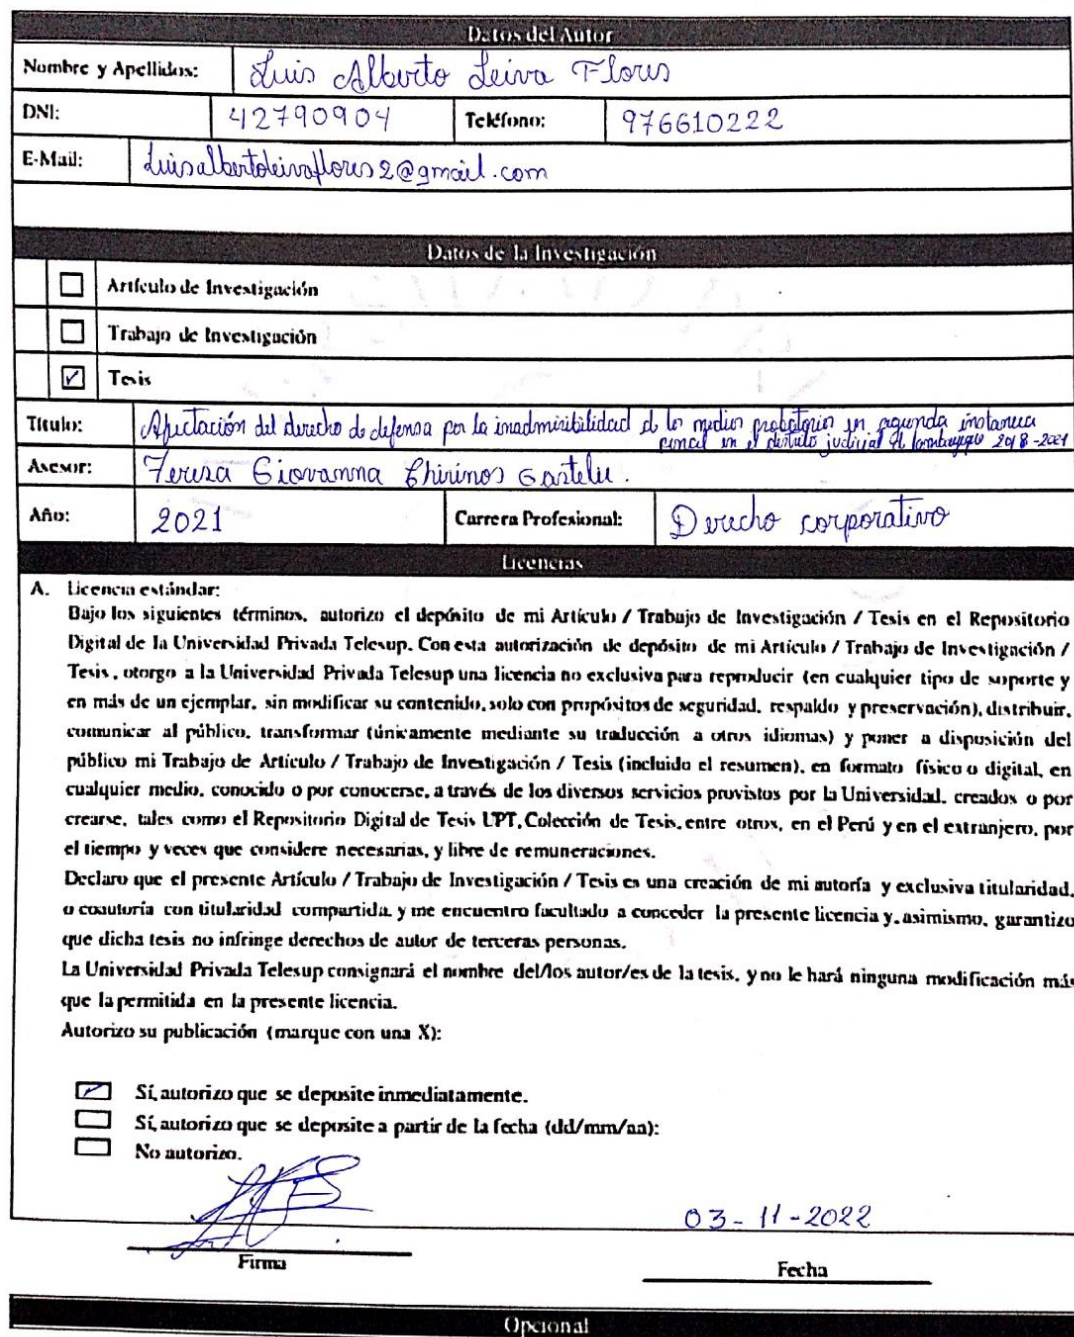 Datos del Autor
Nombre y Apellidos: Luis Alberto Leiva Flores
DNI: 42790904 Teléfono: 976610222
E-Mail: Luisalbertoleivaflores2@gmail.com
Datos de la Investigación
Artículo de Investigación
Trabajo de Investigación
Tesis
Título: Afectación del derecho de defensa por la inadmisibilidad de los medios probatorios en segunda instancia
penal en el distrito judicial de Lambayeque 2018-2021
Asesor: Teresa Giovanna Chirinos Gastelu.
Año: 2021 Carrera Profesional: Derecho corporativo
Licencias
A. Licencia estándar:
Bajo los siguientes términos, autorizo el depósito de mi Artículo / Trabajo de Investigación / Tesis en el Repositorio
Digital de la Universidad Privada Telesup. Con esta autorización de depósito de mi Artículo / Trabajo de Investigación /
Tesis, otorgo a la Universidad Privada Telesup una licencia no exclusiva para reproducir (en cualquier tipo de soporte y
en más de un ejemplar, sin modificar su contenido, solo con propósitos de seguridad, respaldo y preservación), distribuir,
comunicar al público, transformar (únicamente mediante su traducción a otros idiomas) y poner a disposición del
público mi Trabajo de Artículo / Trabajo de Investigación / Tesis (incluido el resumen), en formato físico o digital, en
cualquier medio, conocido o por conocerse, a través de los diversos servicios provistos por la Universidad, creados o por
crearse, tales como el Repositorio Digital de Tesis UPT, Colección de Tesis, entre otros, en el Perú y en el extranjero, por
el tiempo y veces que considere necesarias, y libre de remuneraciones.
Declaro que el presente Artículo / Trabajo de Investigación / Tesis es una creación de mi autoría y exclusiva titularidad,
o coautoría con titularidad compartida, y me encuentro facultado a conceder la presente licencia y, asimismo, garantizo
que dicha tesis no infringe derechos de autor de terceras personas.
La Universidad Privada Telesup consignará el nombre del/los autor/es de la tesis, y no le hará ninguna modificación más
que la permitida en la presente licencia.
Autorizo su publicación (marque con una X):
Sí, autorizo que se deposite inmediatamente.
Sí, autorizo que se deposite a partir de la fecha (dd/mm/aa):
No autorizo.
03-11-2022
Firma Fecha
Opcional